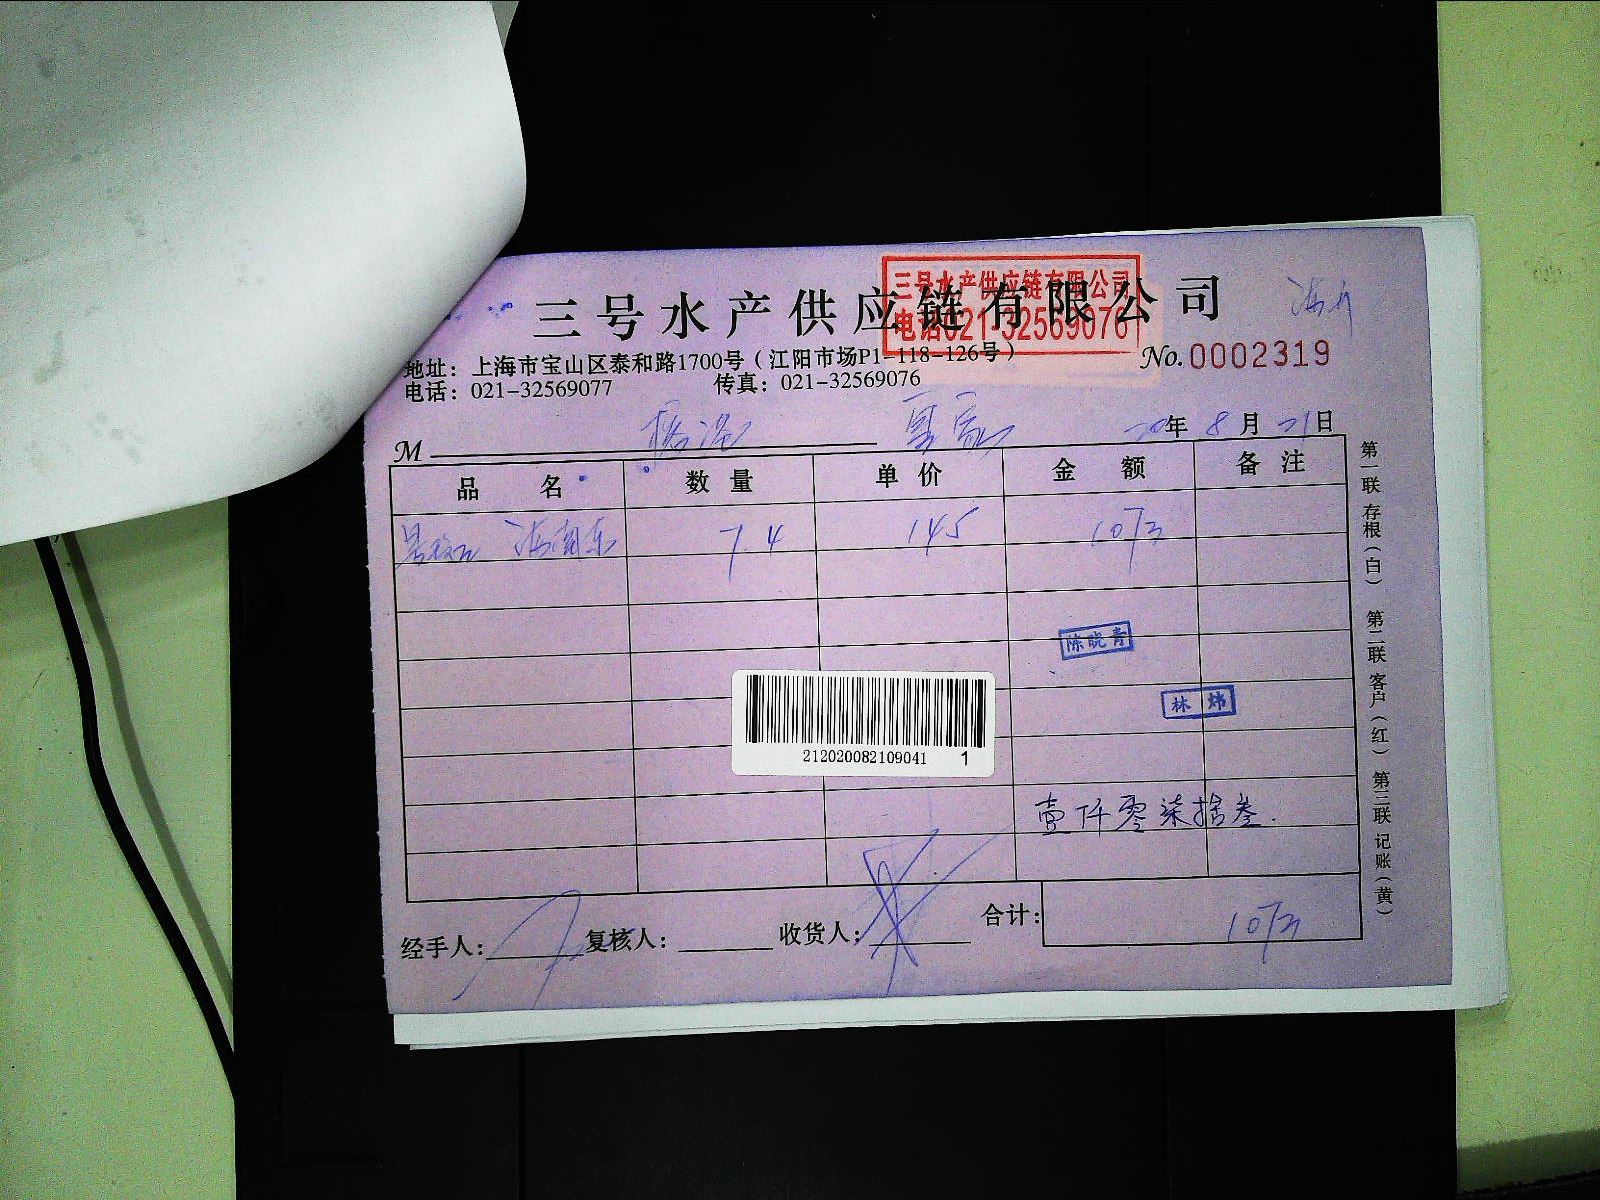 三号水产供应链有限公司
三号水产供应链有限公司
电话021-32569076
地址：上海市宝山区泰和路1700号（江阳市场P1-118-126号）
No.0002319
电话：021-32569077 传真：021-32569076
M
20年8月21日
品名 数量 单价 金额 备注
7.4 145 1073
陈晓青
林炜
212020082109041 1
壹仟零柒拾叁.
合计：1073
经手人： 复核人： 收货人：
第一联 存根（白） 第二联 客户（红） 第三联 记账（黄）